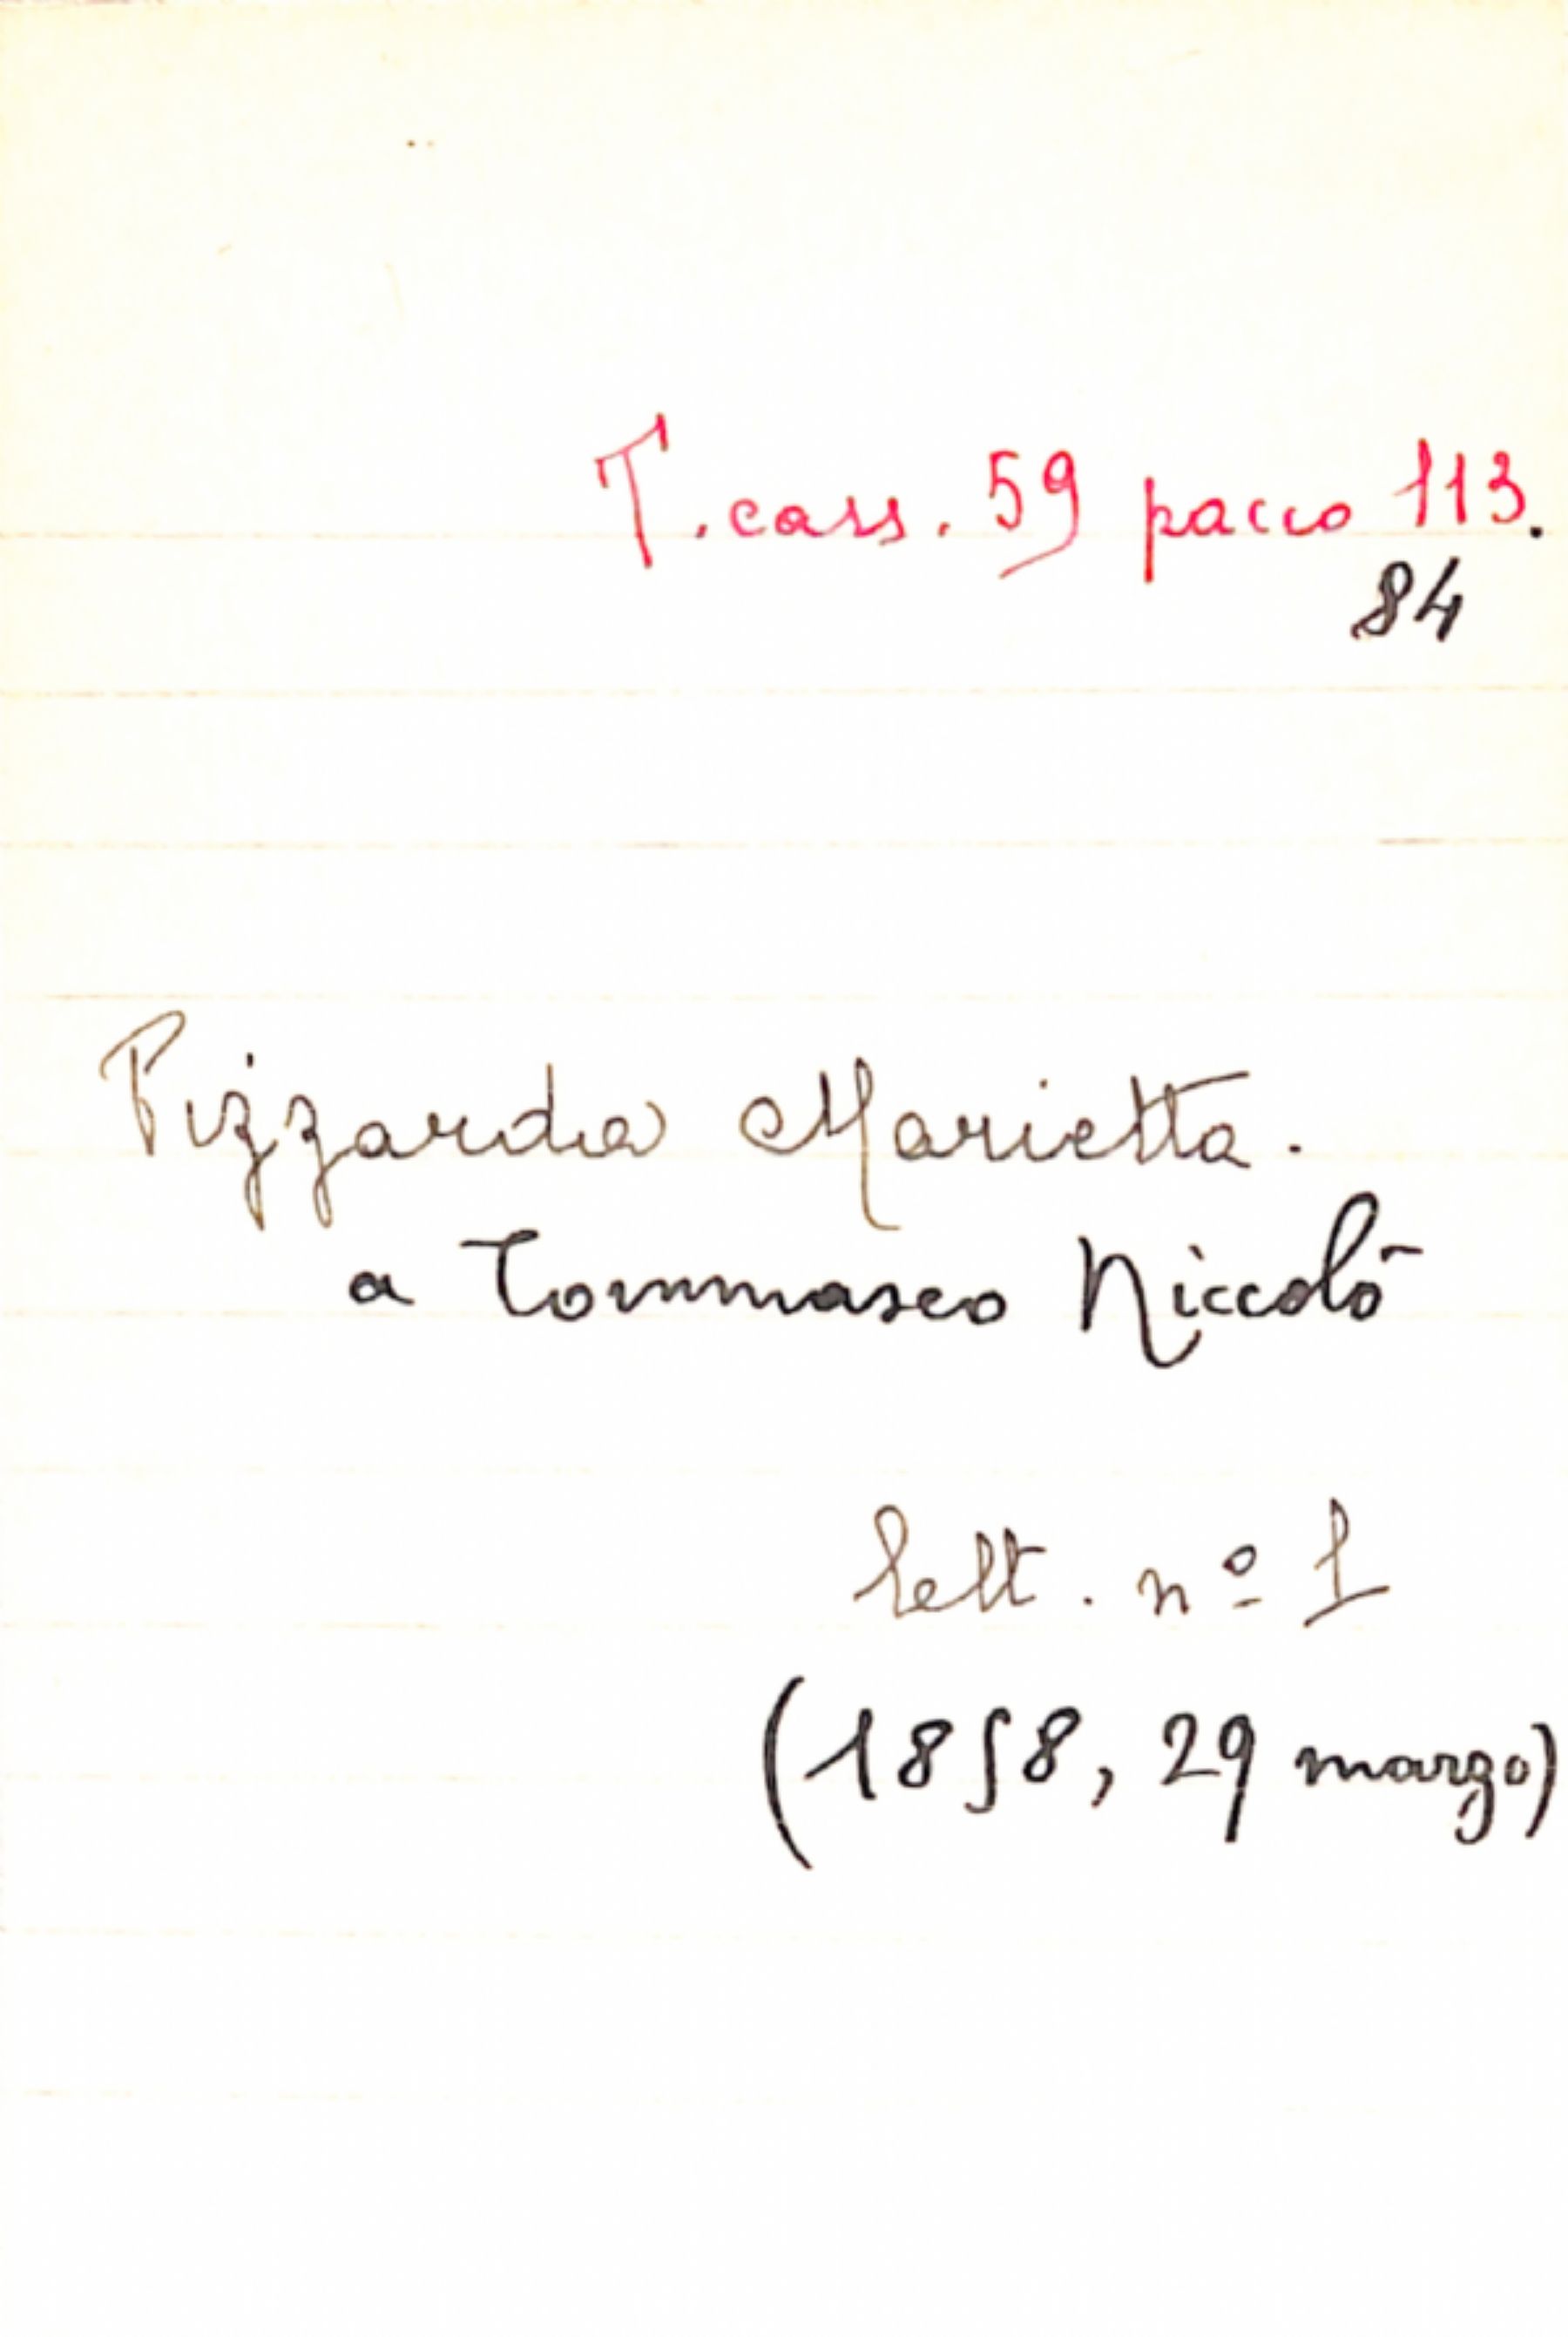 T. cass. 59 pacco 113.
84
Pizzardo Marietta.
a Tommaseo Niccolò
lett. nº 1
(1858, 29 marzo)